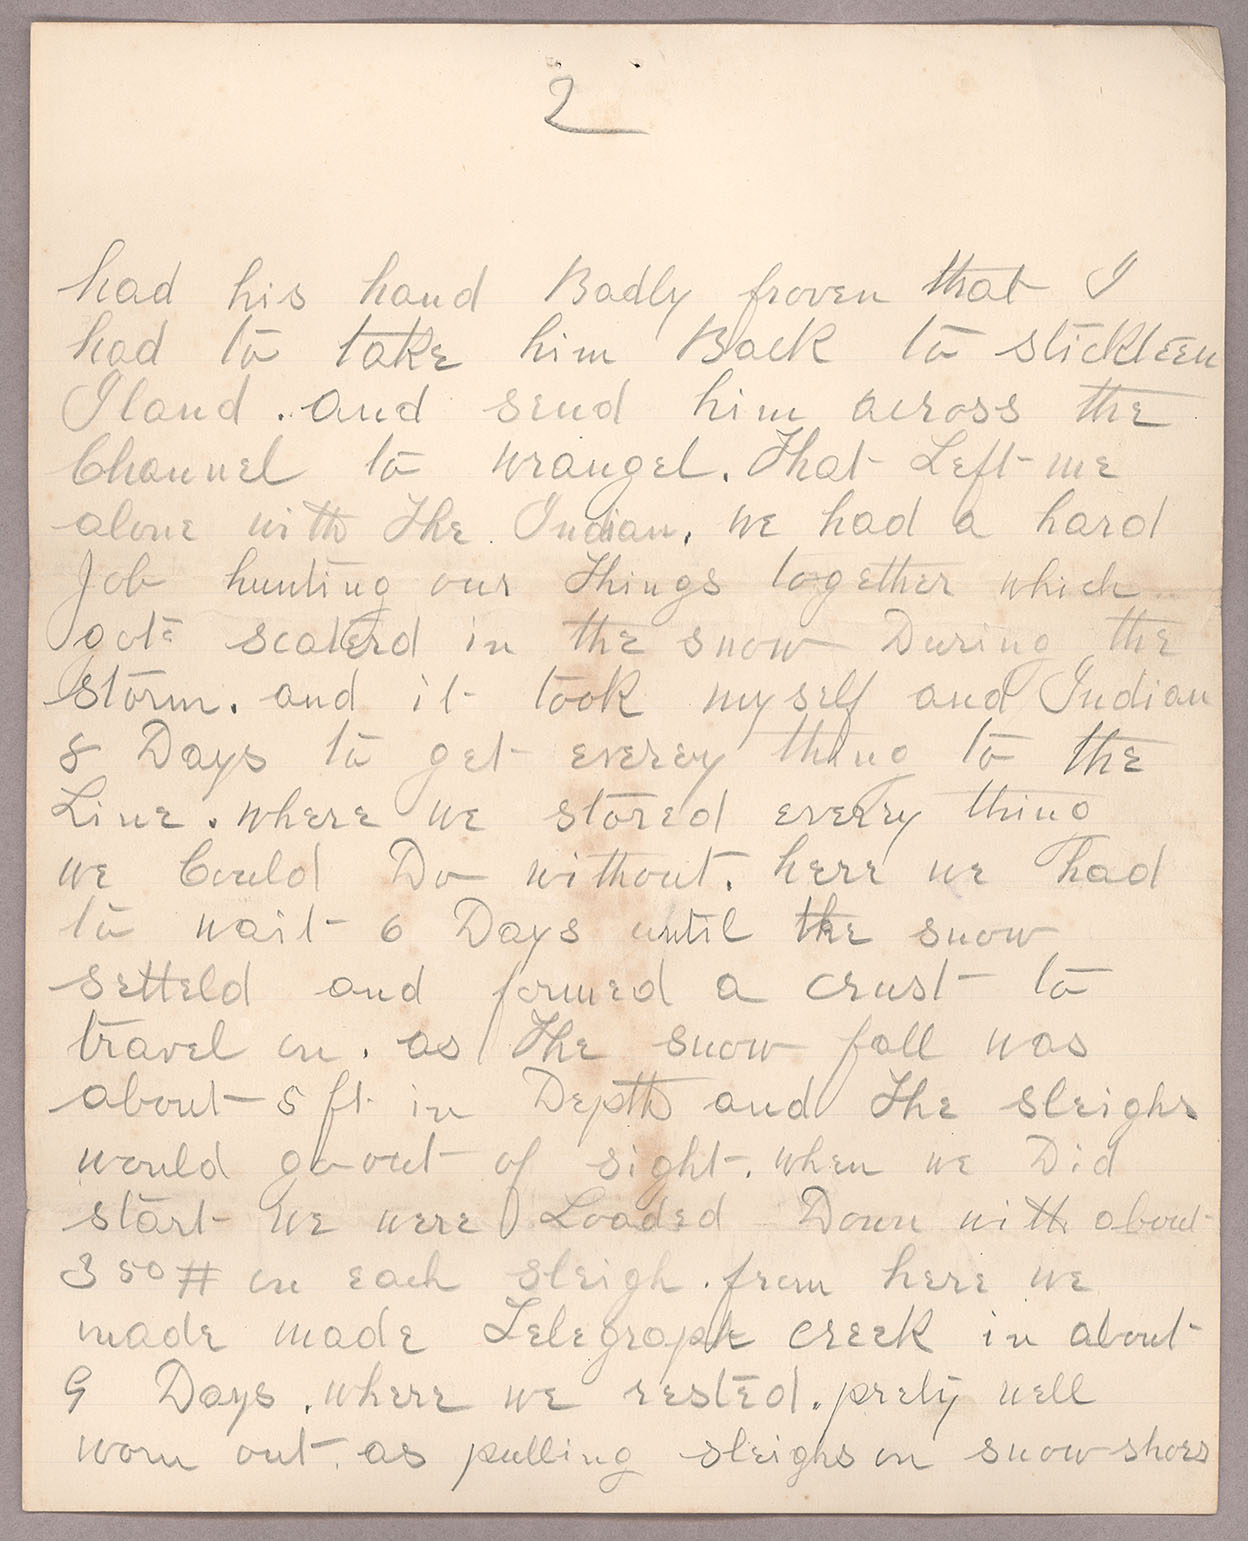 2
had his hand Badly froven that I
had to take him Back to stickteen
Iland . and send him across the
Channel to wrangel. That Left me
alone with The Indian. we had a hard
Job hunting our Things together which
got scaterd in the snow During the
storm. and it took my self and Indian
8 Days to get everey thing to the
Line . where we stored everey thing
we Could Do without. here we had
to wait 6 Days until the snow
setteld and formed a crust to
travel on . as The snow fall was
about 5 ft in Depth and The sleighs
would go out of sight . when we Did
start we were Loaded Down with about
350 # on each sleigh . from here we
made made Telegraph creek in about
9 Days . where we rested . prety well
worn out . as pulling sleighs on snow shoes